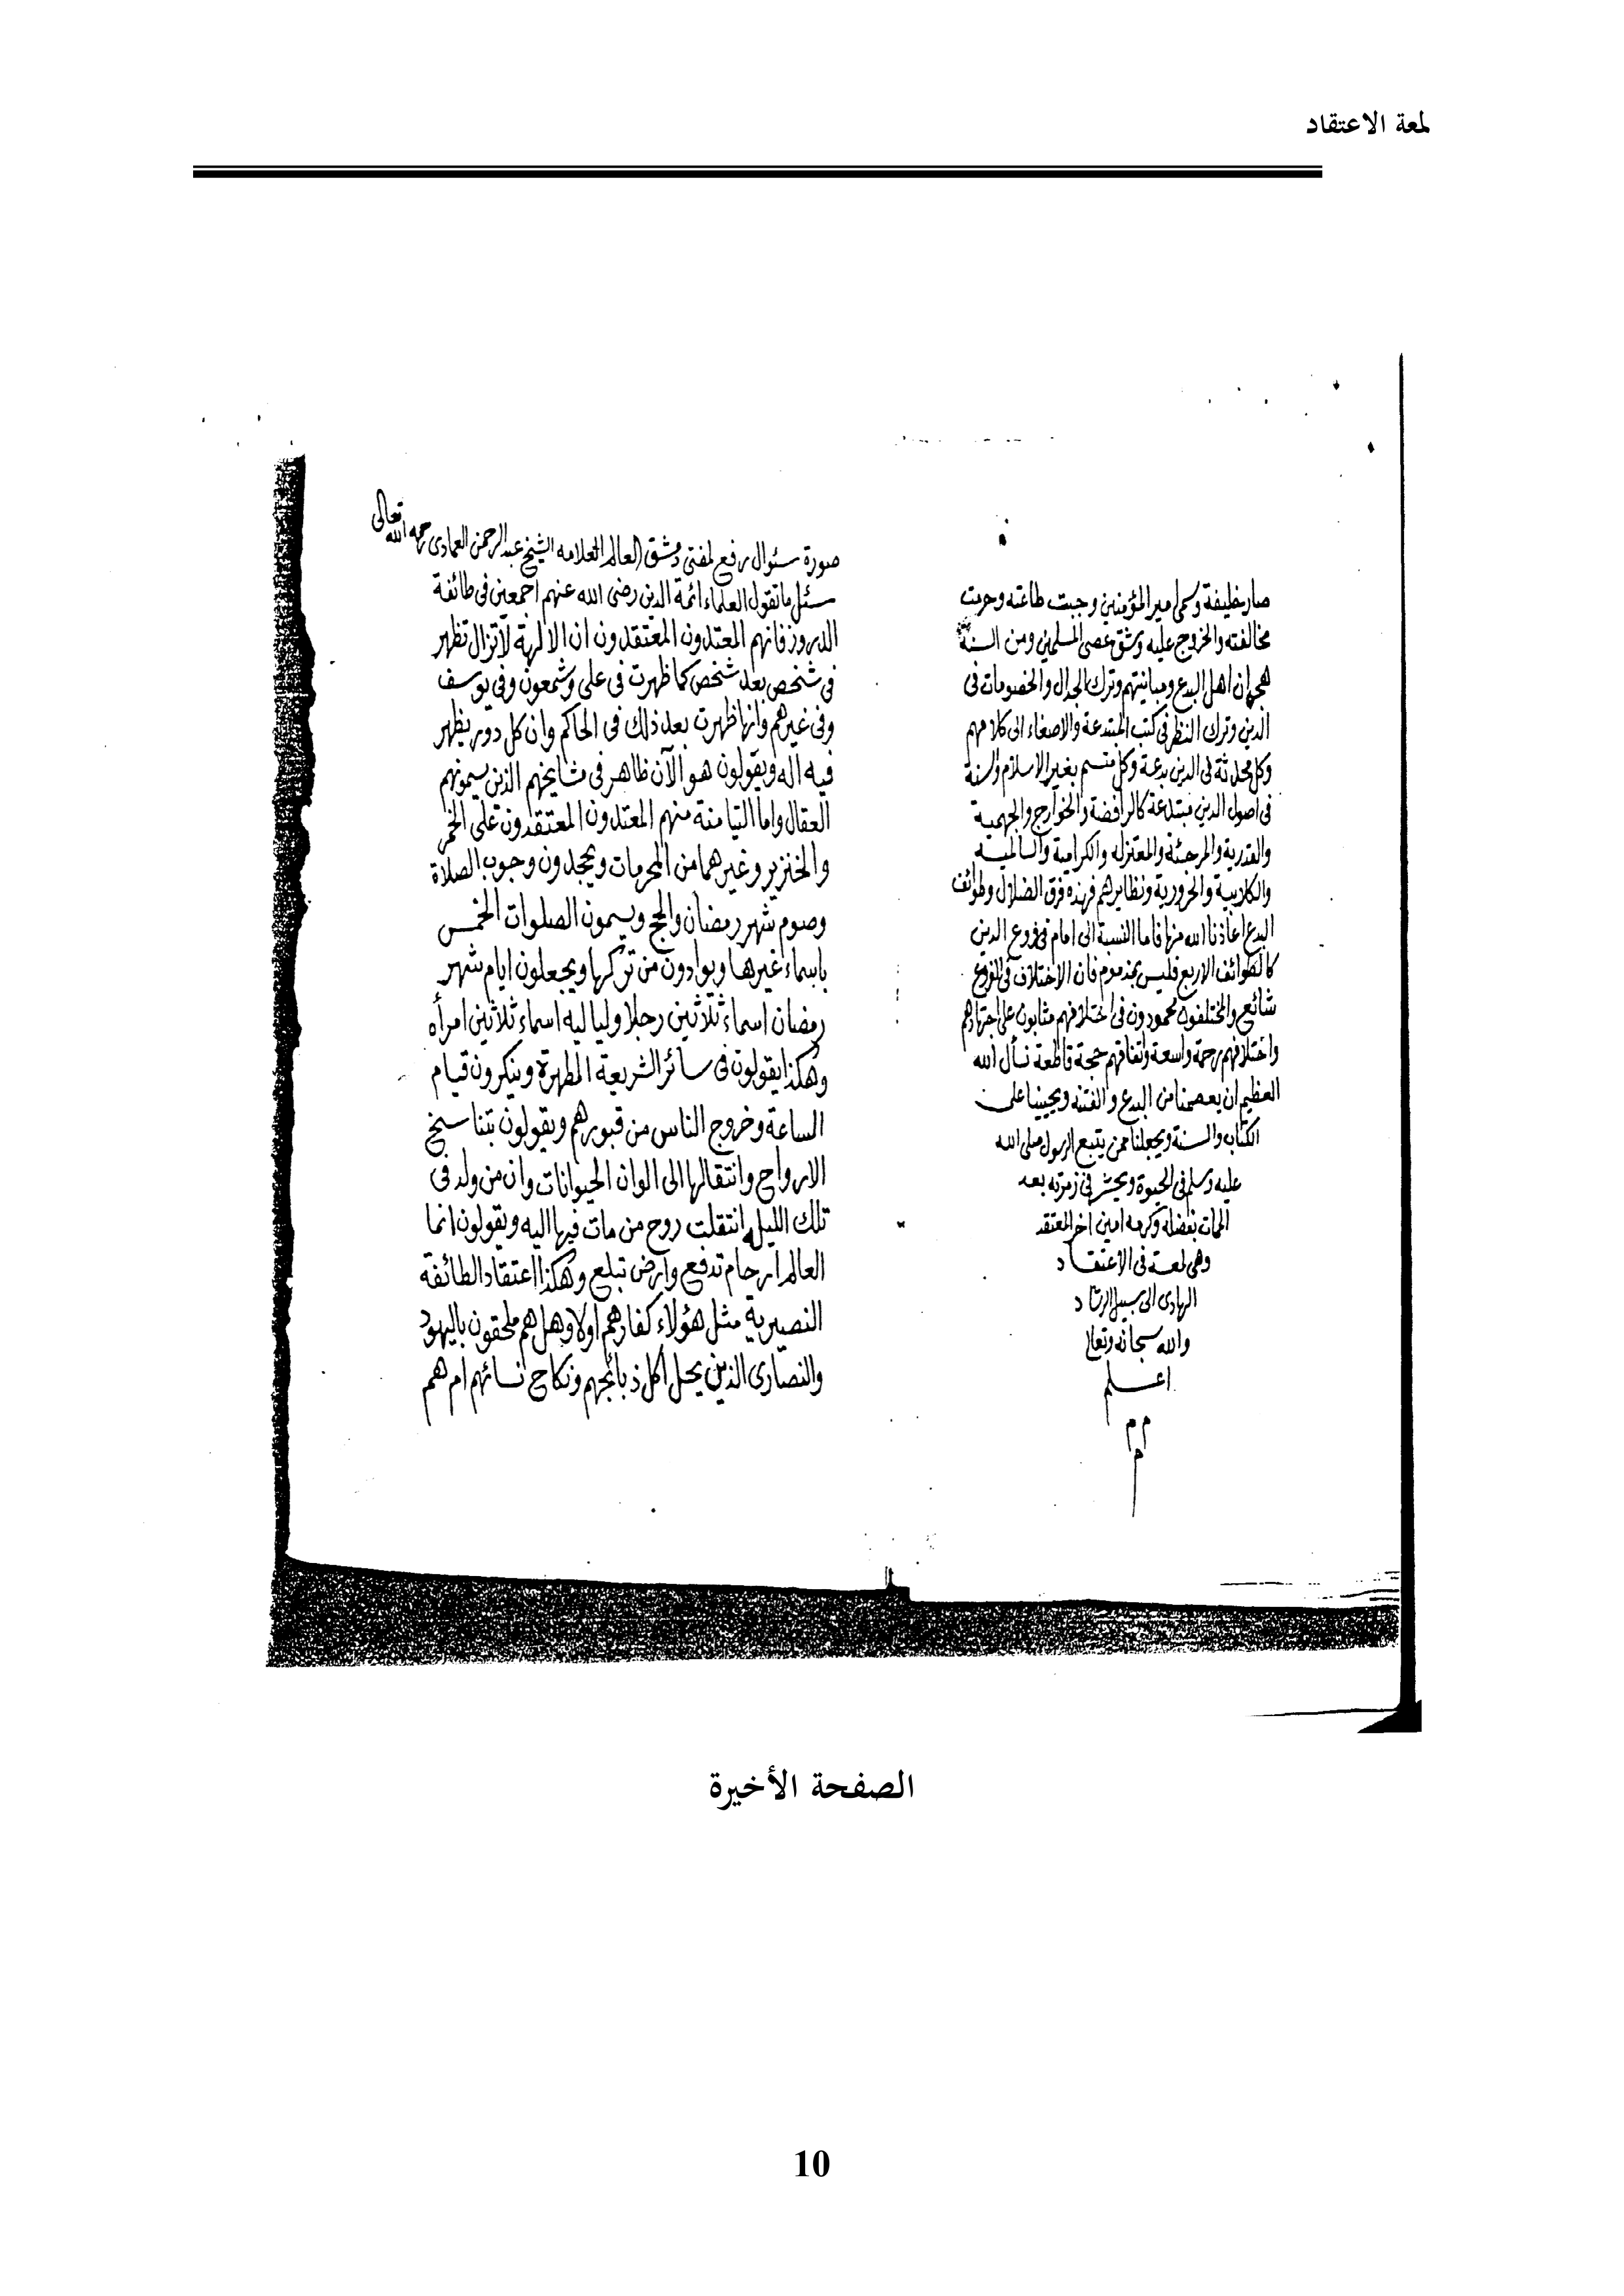 لمعة الاعتقاد
صار خليفة وسمى امير المؤمنين وجبت طاعته وحرمت
مخالفته والخروج عليه وشق عصى المسلمين ومن السنة
هجران اهل البدع ومباينتهم وترك الجدال والخصومات فى
الدين وترك النظر فى كتب المبتدعة والاصغاء الى كلامهم
وكل محدثة فى الدين بدعة وكل متسم بغير الاسلام والسنة
فى اصول الدين مبتدعة كالرافضة والخوارج والجهمية
والقدرية والمرجئة والمعتزله والكرامية والسالمية
والكلابية والحرورية ونظايرهم فهذه فرق الضلال وطوائف
البدع اعاذنا الله منها فاما النسبة الى امام فى فروع الدين
كالطوائف الاربع فليس بمذموم فان الاختلاف فى الفروع
شائع والمختلفون محمودون فى اختلافهم مثابون على اجتهادهم
واختلافهم رحمة واسعة واتفاقهم حجة قاطعة نسأل الله
العظيم ان يعصمنا من البدع والفتنه ويحيينا على
الكتاب والسنة ويجعلنا ممن يتبع الرسول صلى الله
عليه وسلم فى الحيوة ويحشر فى زمرته بعد
الممات بفضله وكرمه امين اخر المعتقد
وهى لمعة فى الاعتقاد
الهادى الى سبيل الرشاد
والله سبحانه وتعالى
اعلم
م م
م
صورة سئوال رفع لمفتى دمشق العالم العلامه الشيخ عبد الرحمن العمادى رحمه الله تعالى
سئل ما تقول العلماء ائمة الدين رضى الله عنهم اجمعين فى طائفة
الدروز فانهم المعتدون المعتقدون ان الالهة لا تزال تظهر
فى شخص بعد شخص كما ظهرت فى على وشمعون وفى يوسف
وفى غيرهم وانها ظهرت بعد ذلك فى الحاكم وان كل دور يظهر
فيه اله ويقولون هو الآن ظاهر فى مشايخهم الذين يسمونهم
العقال واما التيامنة منهم المعتدون المعتقدون على الخمر
والخنزير وغيرهما من المحرمات ويجحدون وجوب الصلاة
وصوم شهر رمضان والحج ويسمون الصلوات الخمس
باسماء غيرها ويوادون من تركها ويجعلون ايام شهر
رمضان اسماء ثلاثين رجلا ولياليه اسماء ثلاثين امرأه
وهكذا يقولون فى سائر الشريعة المطهرة وينكرون قيام
الساعة وخروج الناس من قبورهم ويقولون بتناسخ
الارواح وانتقالها الى الوان الحيوانات وان من ولد فى
تلك الليلة انتقلت روح من مات فيها اليه ويقولون انما
العالم ارحام تدفع وارض تبلع وهكذا اعتقاد الطائفة
النصيرية مثل هؤلاء كفارهم اولا وهل هم ملحقون باليهود
والنصارى الذين يحل اكل ذبائحهم ونكاح نسائهم ام هم
الصفحة الأخيرة
10